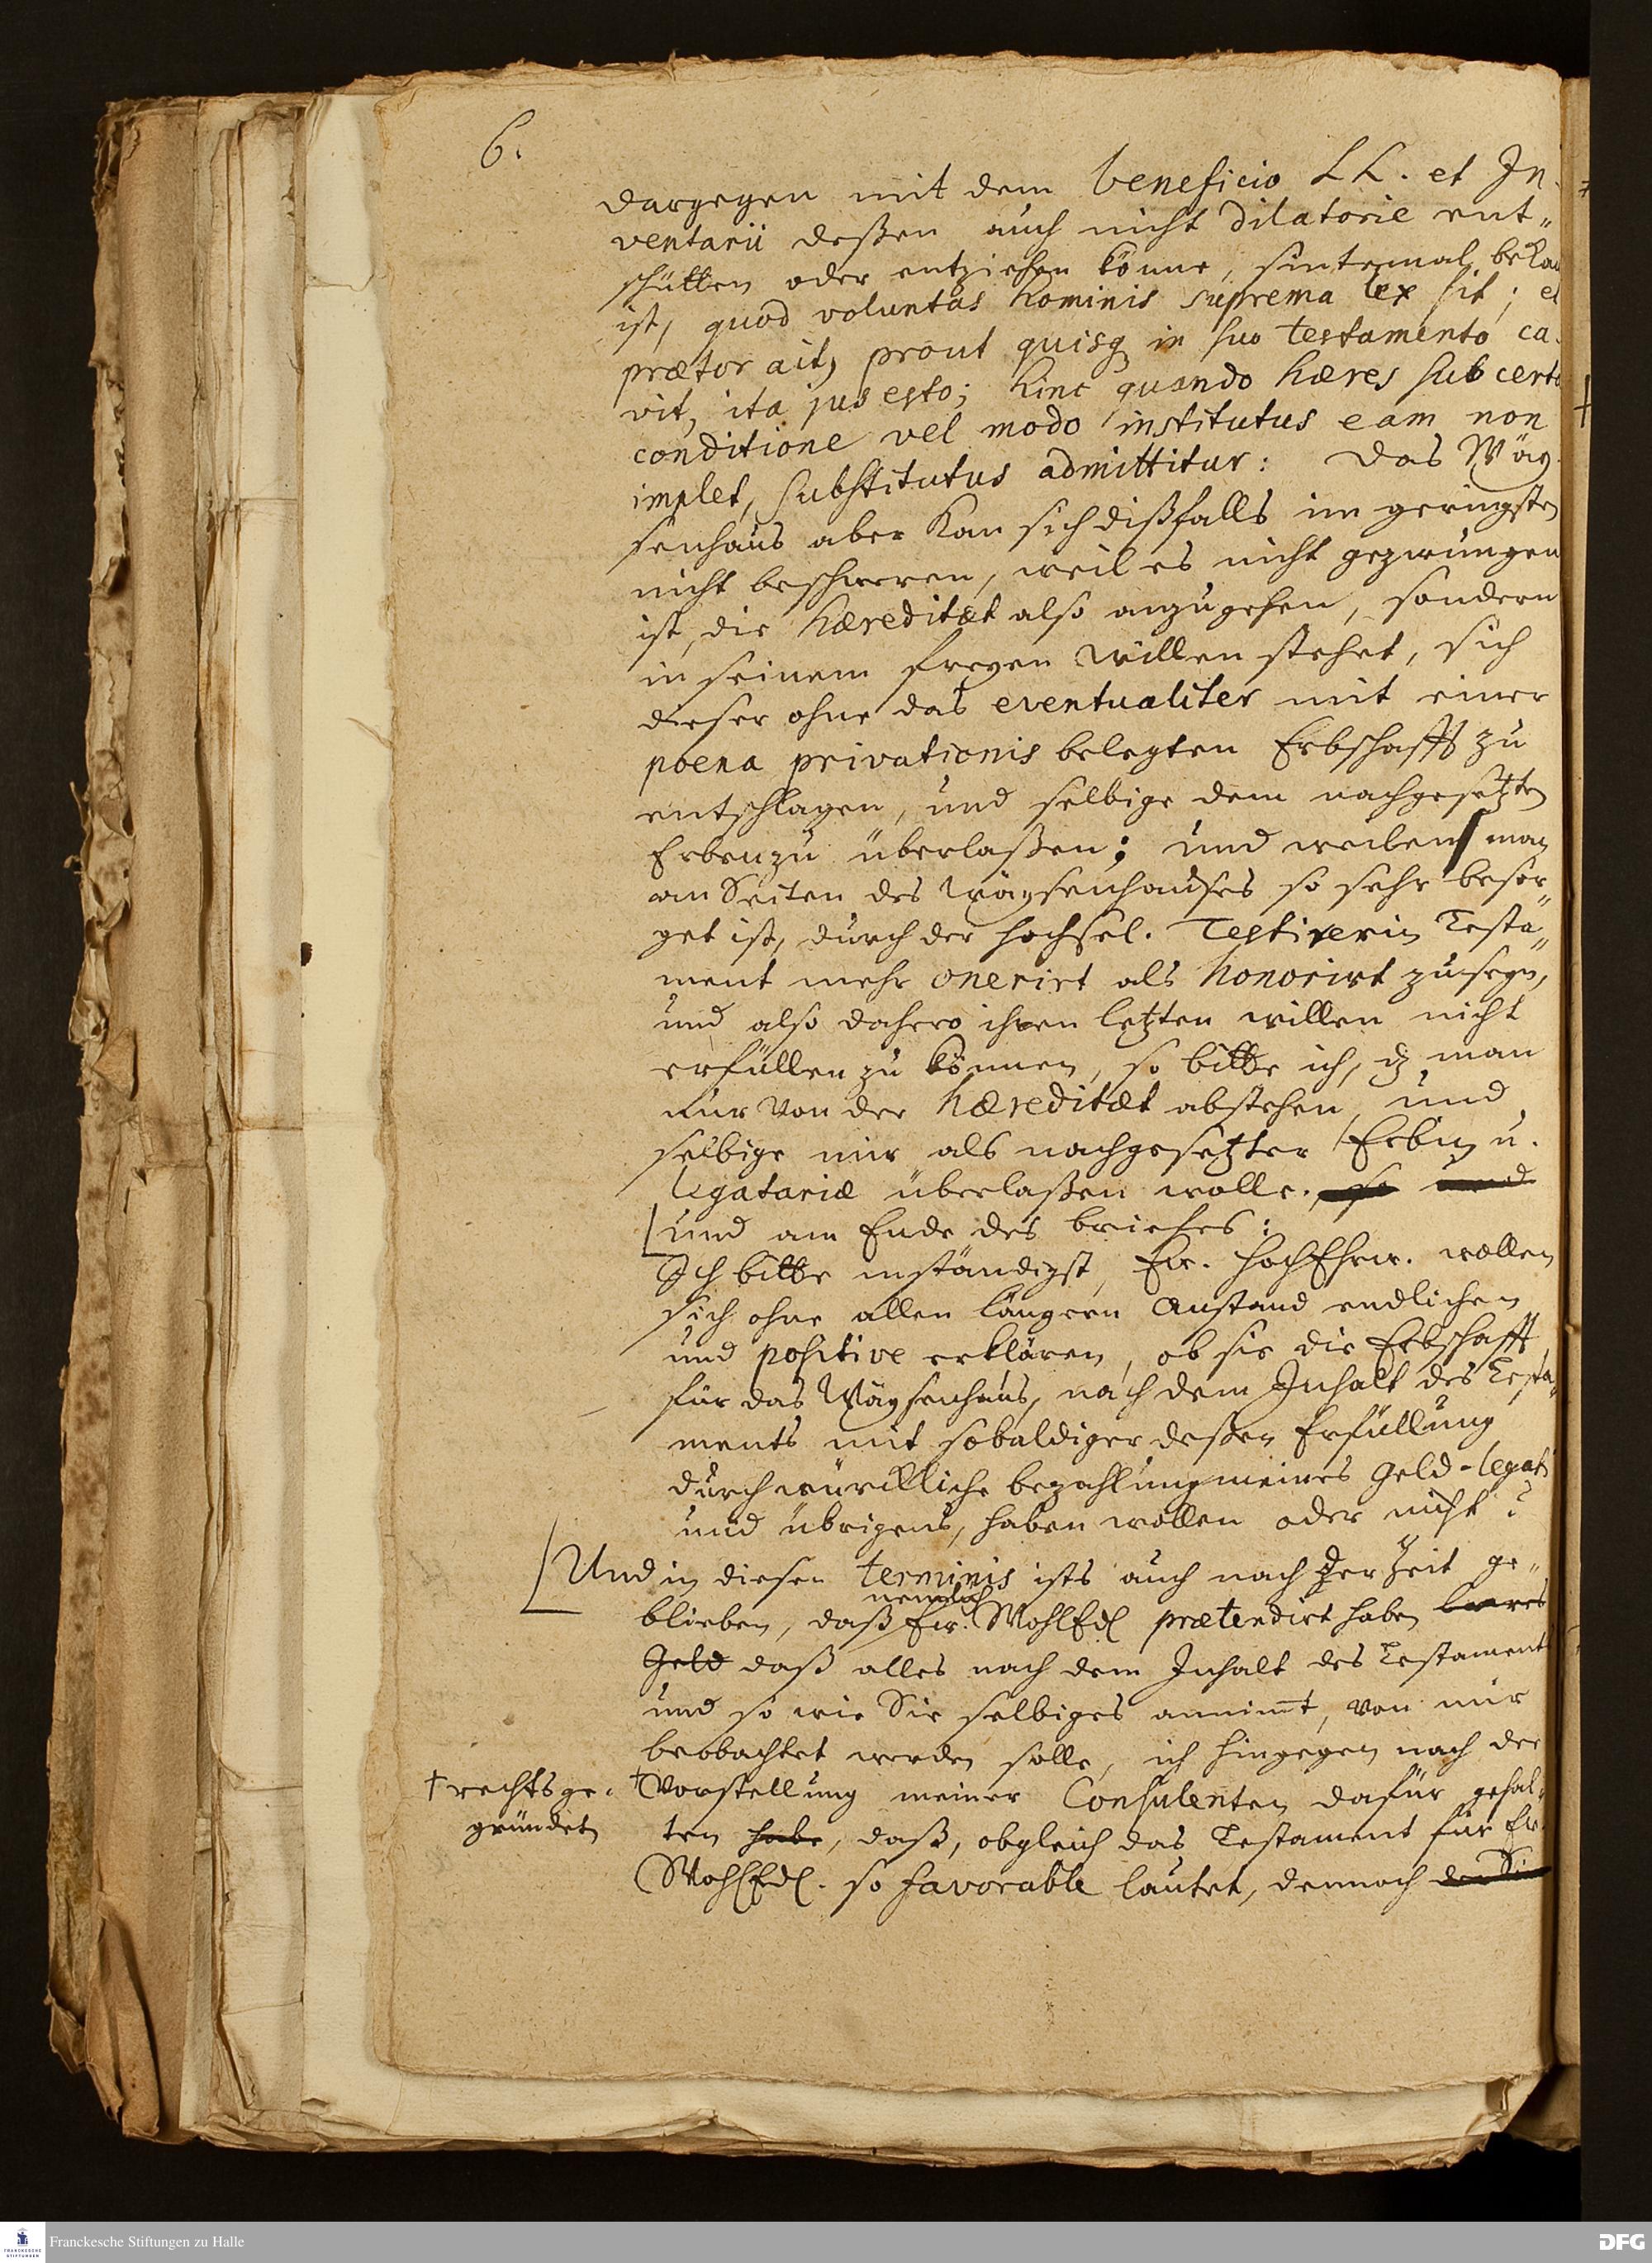 6.
dargegen mit dem beneficio LL. et In-
ventarii deßen auch nicht dilatorie ent„
schütten oder entziehen könne, sintemal bekan
ist, quod voluntas hominis suprema lex sit; et
prætor ait, prout quisq in suo testamento ca-
vit, ita jus esto; hinc quando hæres sub certa
conditione vel modo institutus eam non
implet, substitutus admittitur: Das Wäy-
senhaus aber kan sich dißfalls im geringsten
nicht beschweren, weil es nicht gezwungen
ist, die hæreditæt also anzugehen, sondern
in seinem freyen Willen stehet, sich
dieser ohne das eventualiter mit einer
poena privationis belegten Erbschafft zu
entschlagen, und selbige dem nachgesetzten
Erben zu überlaßen; und weilen man
an Seiten des Wäysenhauses so sehr besor„
get ist, durch der hochsel. Testirerin Testa„
ment mehr onerirt als honorirt zu seyn,
und also dahero ihren letzten willen nicht
erfüllen zu können, so bitte ich, dz man
nur von der hæreditæt abstehen, und
selbige mir als nachgesetzter Erbin u.
legatariæ überlaßen wolle. so und
und am Ende des briefes:
Ich bitte inständigst, Ew. HochEhrw. wollen
sich ohne allen längern Anstand endlichen
und positive erklären, ob sie die Erbschafft
für das Wäysenhaus, nach dem Inhalt des Testa„
ments mit sobaldiger deßen Erfüllung
durch würckliche bezahlung meines Geld-legati
und übrigens, haben wollen oder nicht?
Und in diesen terminis ists auch nach der Zeit ge„
nemlich
blieben, daß Ew. WohlEdl prætendirt haben baares
Geld daß alles nach dem Inhalt des Testament
und so wie Sie selbiges annimt, von mir
beobachtet werden solle, ich hingegen nach der
† rechtsge-
gründeten
†Vorstellung meiner Consulenten dafür gehal„
ten habe, daß, obgleich das Testament für Ew.
WohlEdl. so favorable lautet, dennoch der Sinn
Franckesche Stiftungen zu Halle
FRANCKESCHE STIFTUNGEN
DFG